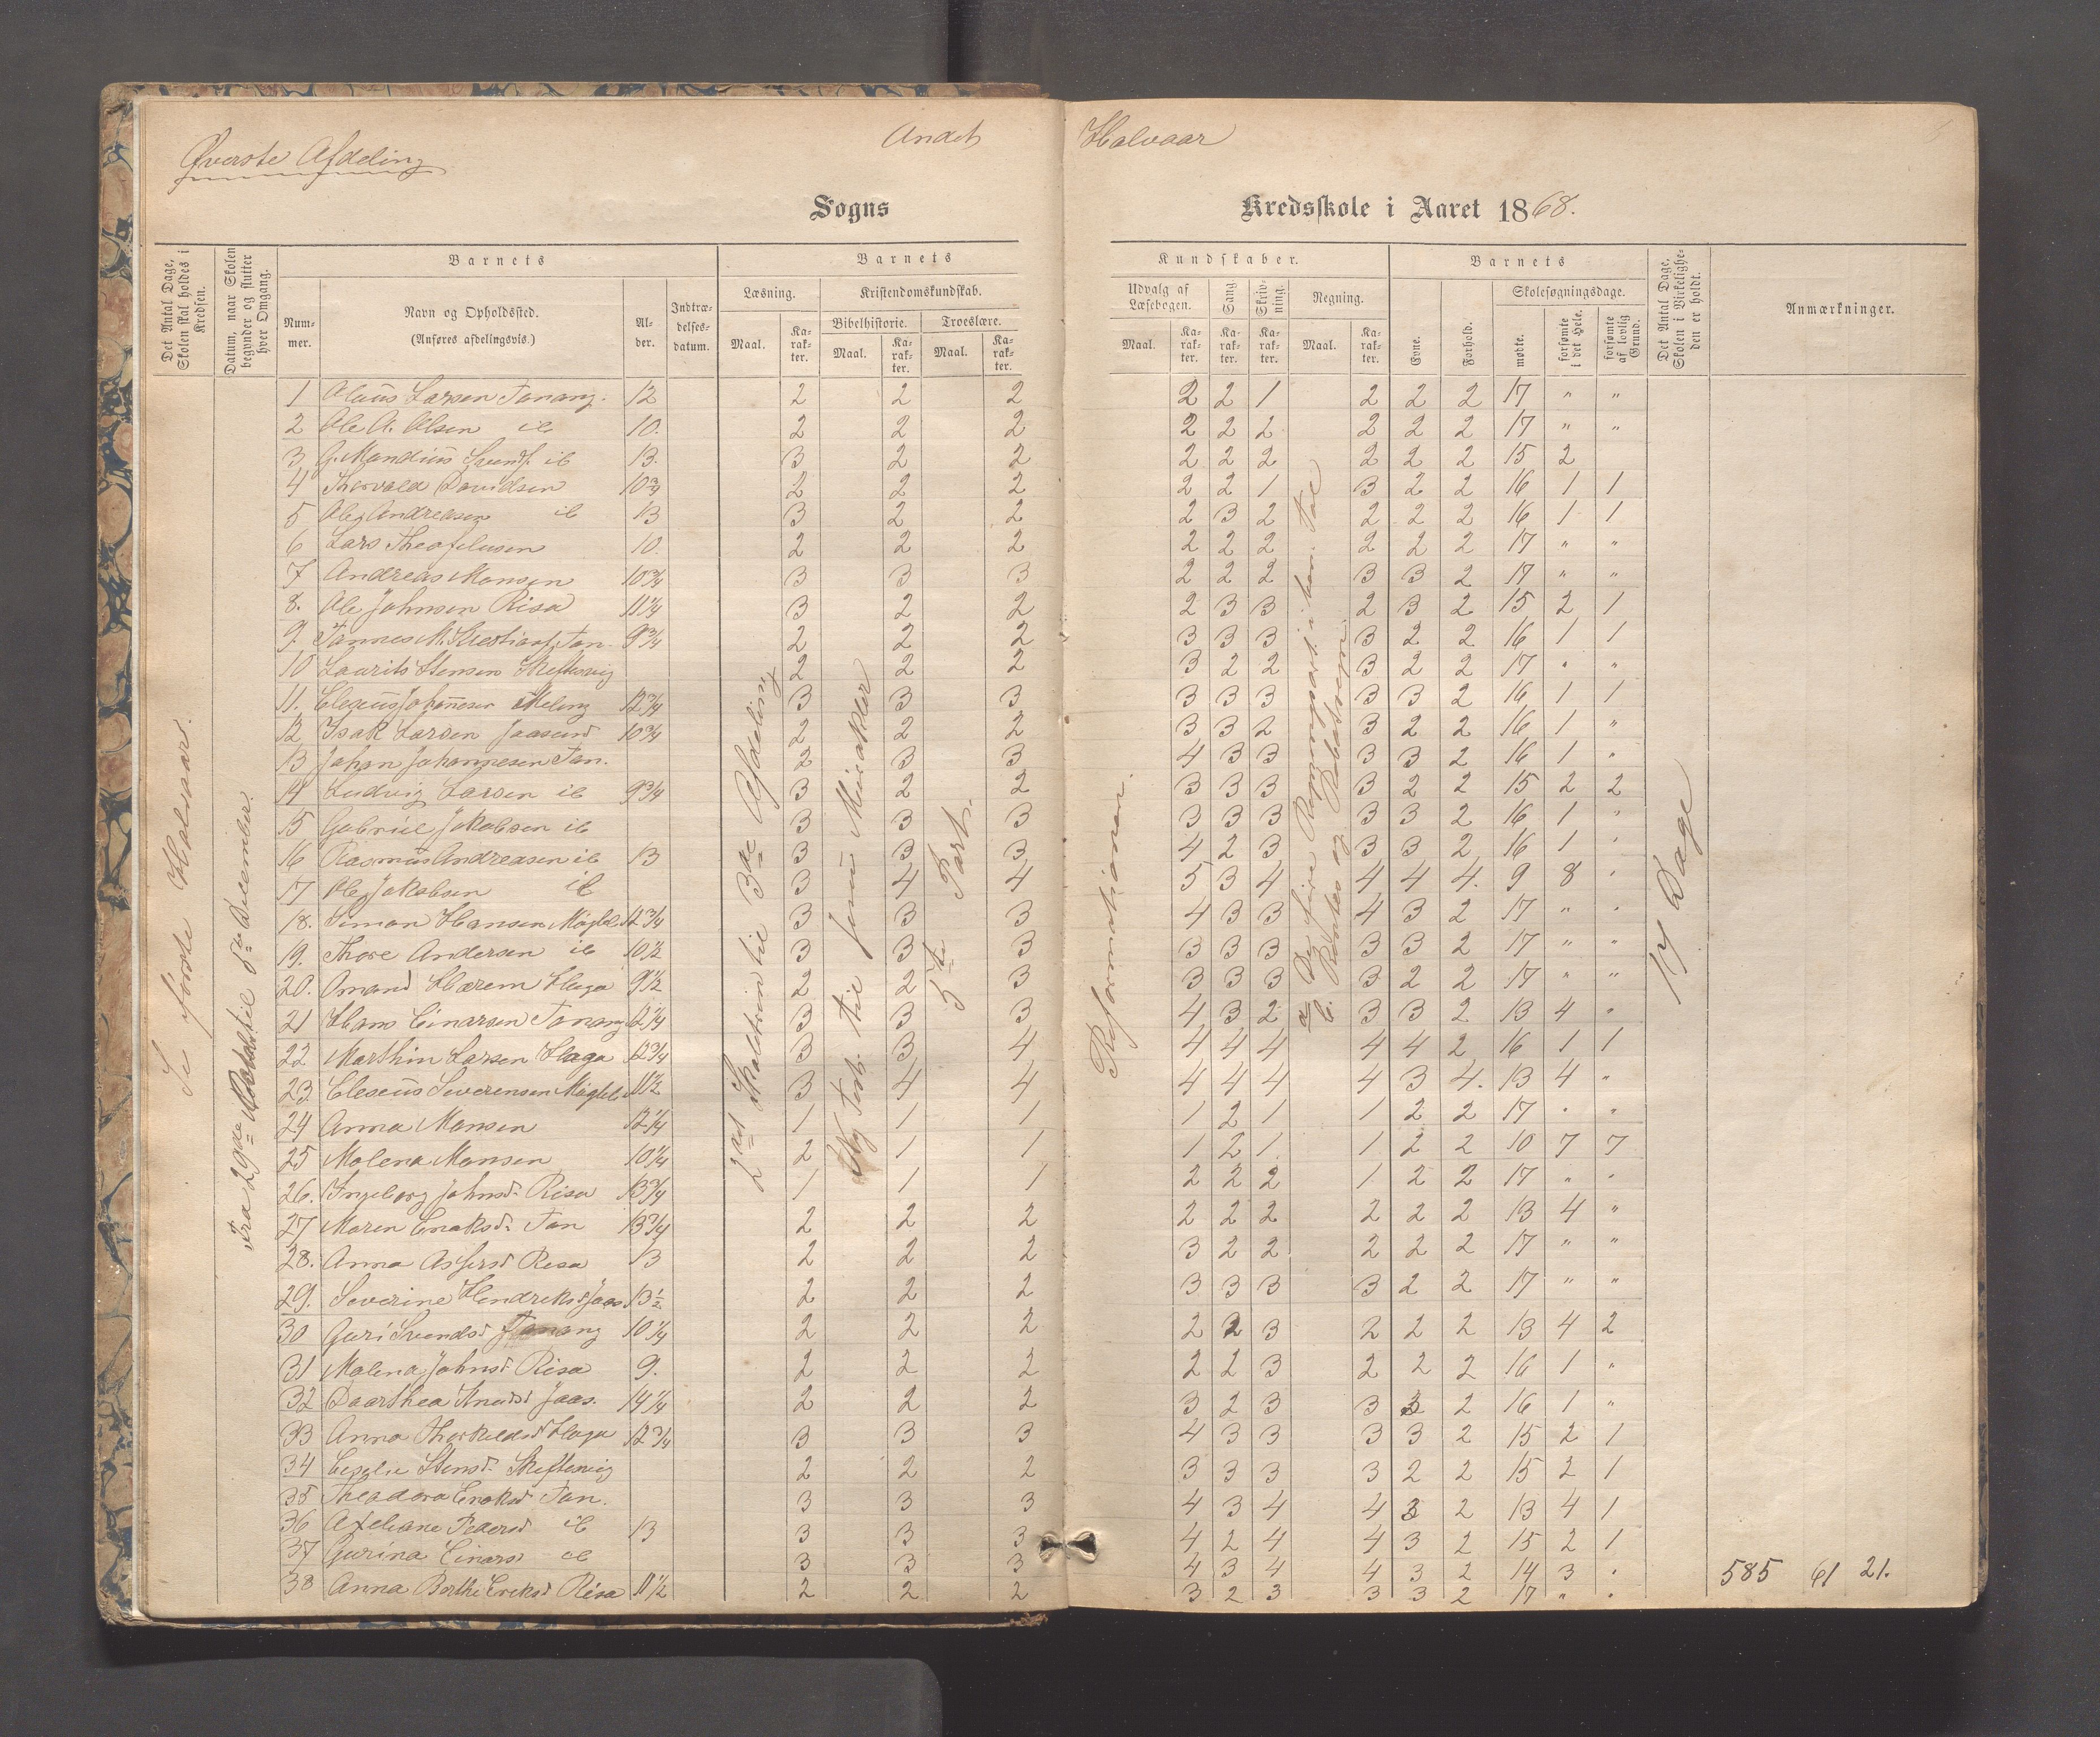 Øverste Afdeling
Andet Halvaar
Sogns Kredsskole i Aaret 1868.
Det Antal Dage, Skolen skal holdes i Kredsen.
Datum, naar Skolen begynder og slutter hver Omgang.
Barnets
Barnets Kundskaber.
Barnets
Det Antal Dage, Skolen i Virkeligheden er holdt.
Anmærkninger.
Nummer.
Navn og Opholdssted.
(Anføres afdelingsvis.)
Alder.
Indtrædelsesdatum.
Læsning.
Kristendomskundskab.
Udvalg af Læsebogen.
Sang.
Skrivning.
Regning.
Evne.
Forhold.
Skolesøgningsdage.
Bibelhistorie.
Troeslære.
Maal.
Karakter.
Maal.
Karakter.
Maal.
Karakter.
Maal.
Karakter.
Karakter.
Karakter.
Maal.
Karakter.
mødte.
forsømte i det Hele.
forsømte af lovlig Grund.
Se første Halvaar.
Fra 29de til 8de December.
2det Skoletrin til 3de Afdeling
Ny Test. til Jesu Mirakler
5te Part.
Reformationen.
a De fire Regningsart. i hen. Tal
b. Rentes og Rabatregn.
17 Dage
1 Olaus Larsen Tanang. 12 2 2 2 2 2 1 2 2 2 17 " "
2 Ole A. Olsen ib 10. 2 2 2 2 2 2 2 2 2 17 " "
3 G. Mandius Svends. ib 13. 3 2 2 2 2 2 2 2 2 15 2
4 Thorvald Davidsen 10 3/4 2 2 2 2 2 1 3 2 2 16 1 1
5 Ole Andreasen ib 13 3 2 2 2 3 2 2 2 2 16 1 1
6 Lars Theofelusen 10. 2 2 2 2 2 2 2 2 2 17 " "
7 Andreas Monsen 10 3/4 3 3 3 2 2 2 3 3 2 17 " "
8. Ole Johnsen Risa 11 1/4 3 2 2 2 3 3 2 3 2 15 2 1
9. Tønnes M. Kristians. Tan. 9 3/4 2 2 2 3 3 3 3 2 2 16 1 1
10 Laurits Stensen Skeftesvig 2 2 2 3 2 2 3 2 2 17 " "
11. Eleseus Johannesen Meling 12 3/4 3 3 3 3 3 3 3 3 2 16 1 1
12 Isak Larsen Jaasund 10 3/4 2 2 2 3 3 2 3 2 2 16 1 "
13 Johan Johannesen Tan. 2 3 3 4 3 3 3 3 2 16 1 "
14 Ludvig Larsen ib 9 3/4 3 2 2 3 3 3 3 2 2 15 2 2
15 Gabriel Jakobsen ib 3 3 3 3 3 3 3 3 2 16 1 "
16 Rasmus Andreasen ib 13 3 3 3 4 2 3 3 3 2 16 1 "
17 Ole Jakobsen ib 3 4 4 5 3 4 4 4 4. 9 8 "
18. Simon Hansen Møglebu 12 3/4 3 3 3 4 3 3 4 3 2 17 " "
19. Thore Andersen ib 10 1/2 3 3 3 3 3 3 3 3 2 17 " "
20. Omund Harem Haga 9 1/2 2 2 3 3 3 3 3 2 2 17 " "
21 Hans Einarsen Tanang 12 1/4 3 3 3 4 3 2 3 3 2 13 4 "
22 Marthin Larsen Haga 12 3/4 3 3 4 4 4 4 4 4 2 16 1 1
23 Eleseus Severensen Møgleb. 11 1/2 3 4 4 4 4 4 4 3 4. 13 4 "
24 Anna Monsen 12 1/4 1 1 1 1 2 1 1 2 2 17 " "
25 Malena Monsen 10 1/4 2 1 1 1 2 1. 1 2 2 10 7 7
26. Ingeborg Johnsd. Risa 13 3/4 1 1 1 2 2 2 1 2 2 17 " "
27 Maren Enoksd. Tan 13 3/4 2 2 2 2 2 2 2 2 2 13 4 "
28. Anna Asgersd Risa 13 2 2 2 3 2 2 2 2 2 17 " "
29. Severine Hendriksd Jaas. 13 1/2 2 2 2 3 3 3 3 2 2 17 " "
30 Guri Svendsd Tanang 10 1/4 2 2 2 2 2 3 2 2 2 13 4 2
31 Malena Johnsd. Risa 9. 2 2 2 2 2 3 2 2 2 16 1 "
32 Daarthea Knudsd Jaas. 14 1/4 2 2 2 3 2 3 3 3 2 16 1 "
33 Anna Thorkildsd Haga 12 3/4 3 3 3 4 3 3 3 3 2 15 2 1
34 Stensd. Skeftesvig 2 2 2 3 3 3 3 2 2 15 2 1
35 Theodora Enoksd Tan. 3 3 3 4 3 4 4 3 2 13 4 1
36 Axeliane Pedersd ib 13 3 3 3 4 2 4 4 3 2 15 2 1
37 Gurina Einarsd ib 3 3 3 4 3 4 4 3 2 14 3 "
38 Anna Berthe Ereksd Risa 11 1/2 2 2 2 3 2 3 3 3 2 17 " "
585 61 21.